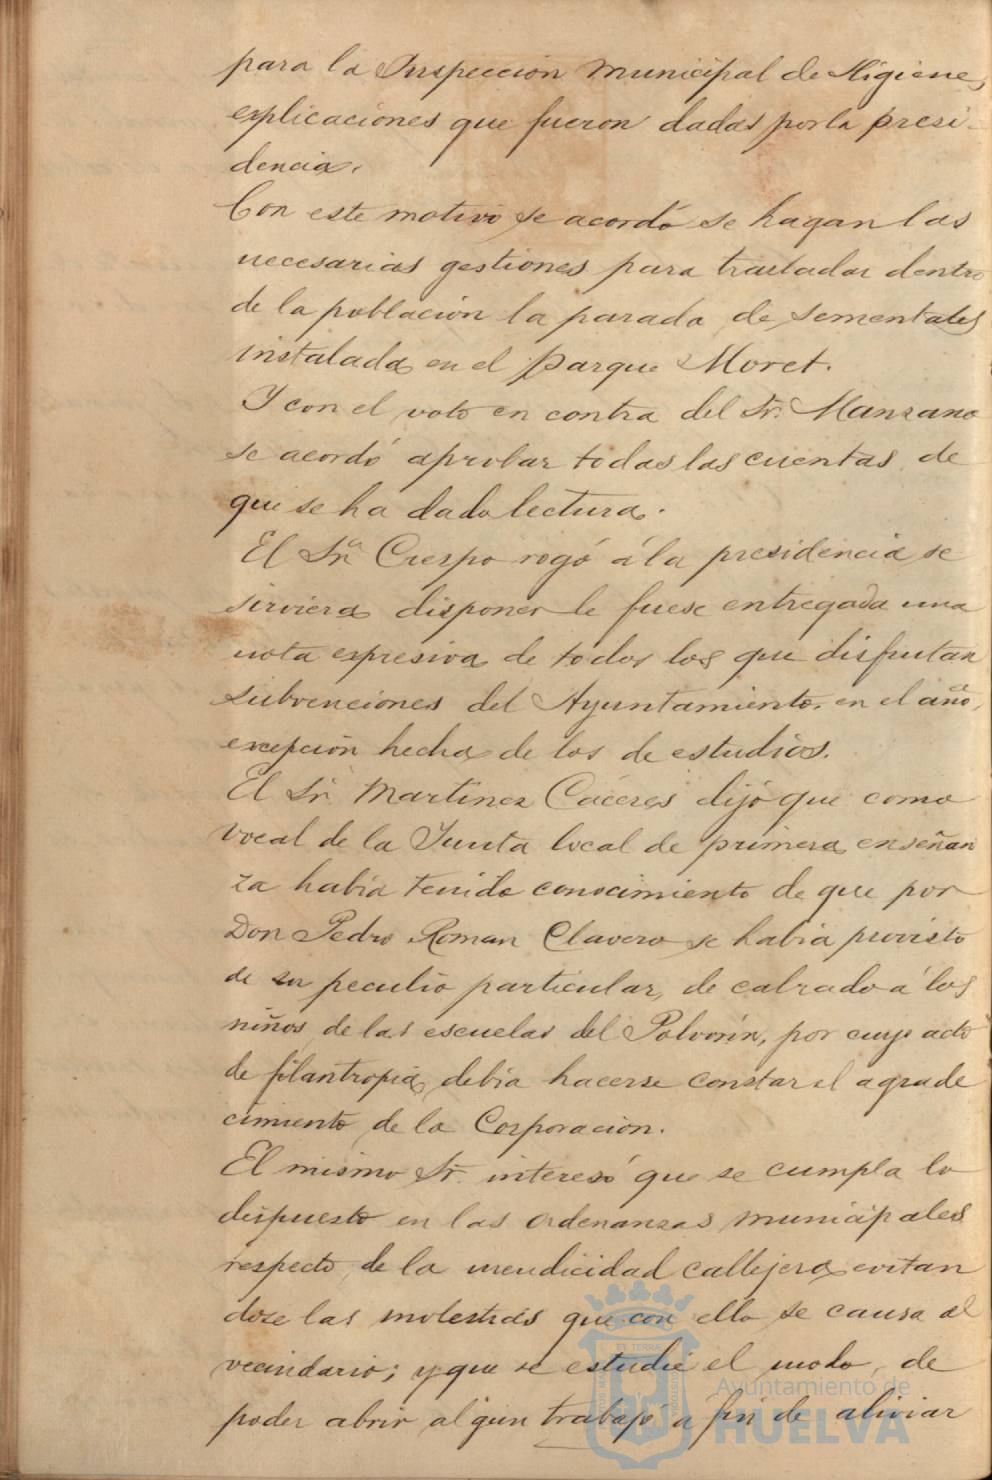 para la Inspección Municipal de Higiene,
explicaciones que fueron dadas por la presi-
dencia.
Con este motivo se acordó se hagan las
necesarias gestiones para trasladar dentro
de la población la parada de sementales
instalada en el parque Moret.
Y con el voto en contra del Sr. Manzano
se acordó aprobar todas las cuentas de
que se ha dado lectura.
El Sr. Crespo rogó á la presidencia se
sirviera disponer le fuese entregada una
nota expresiva de todos los que disfrutan
subvenciones del Ayuntamiento en el año,
excepción hecha de los de estudios.
El Sr. Martinez Cáceres dijo que como
vocal de la Junta local de primera enseñan
za había tenido conocimiento de que por
Don Pedro Roman Clavero se había provisto
de su peculio particular, de calzado á los
niños de las escuelas del Polvorín, por cuyo acto
de filantropia, debia hacerse constar el agrade
cimiento de la Corporación.
El mismo Sr. interesó que se cumpla lo
dispuesto en las ordenanzas municipales
respecto de la mendicidad callejera evitan
dose las molestias que con ello se causa al
vecindario; y que se estudie el modo de
poder abrir algun trabajo á fin de aliviar
Ayuntamiento de
HUELVA